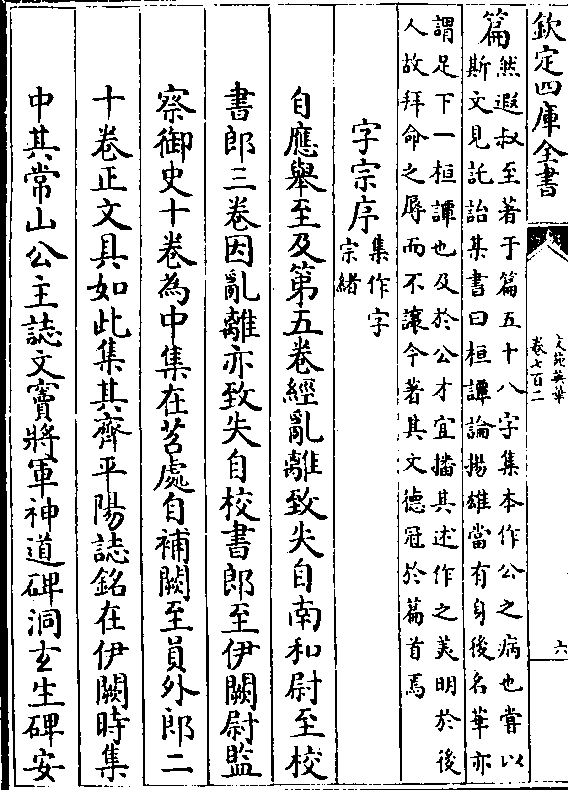 欽定四庫全書
文苑英華
卷七百二
六
篇
然遐叔至著于篇五十八字集本作公之病也嘗以
斯文見託詒某書曰桓譚論揚雄當有身後名華亦
謂足下一桓譚也及於公才宜播其述作之美明於後
人故拜命之辱而不讓今著其文德冠於篇首焉
字宗序
集作字
宗緒
自應舉至及第五卷經亂離致失自南和尉至校
書郎三卷因亂離亦致失自校書郎至伊闕尉監
察御史十卷為中集在處自補闕至員外郎二
十卷正文具如此集其齊平陽誌銘在伊闕時集
中其常山公主誌文竇將軍神道碑洞玄生碑安